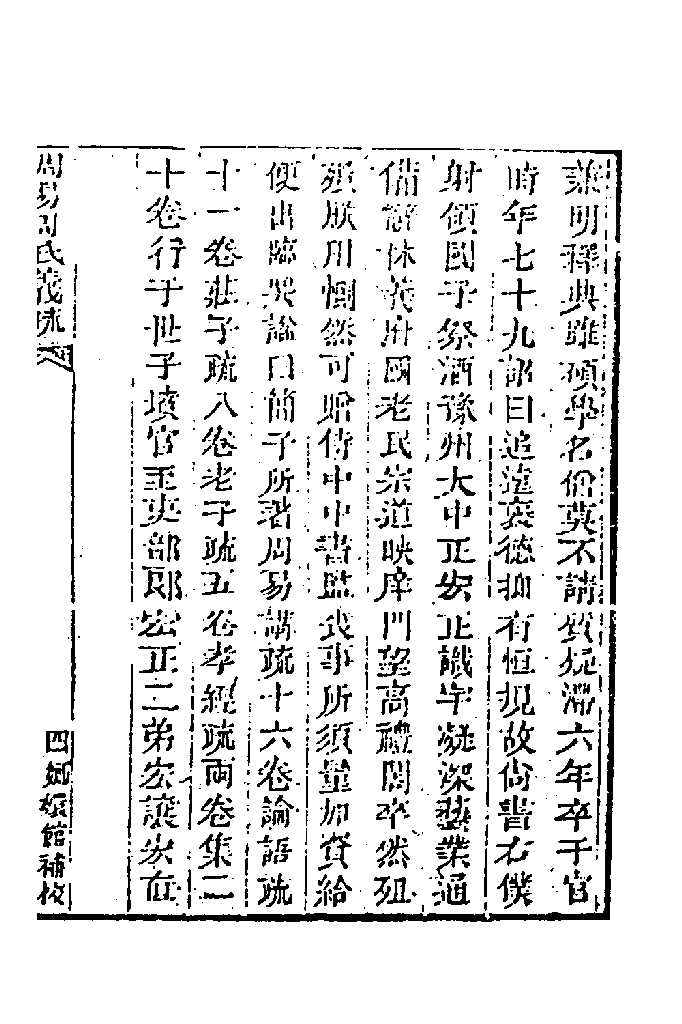 兼明釋典雖碩學名僧莫不請質疑滯六年卒于官
時年七十九詔曰追遠褒德抑有恒規故尚書右僕
射領國子祭酒豫州大中正宏正識宇凝深藝業通
備辭林義府國老民宗道映庠門望高禮閣卒然殂
殞朕用惻然可贈侍中中書監喪事所須量加資給
便出臨哭諡曰簡子所著周易講疏十六卷論語疏
十一卷莊子疏八卷老子疏五卷孝經疏兩卷集二
十卷行于世子墳官至吏部郎宏正二弟宏讓宏直
周易周氏義疏
四嫏嬛館補校